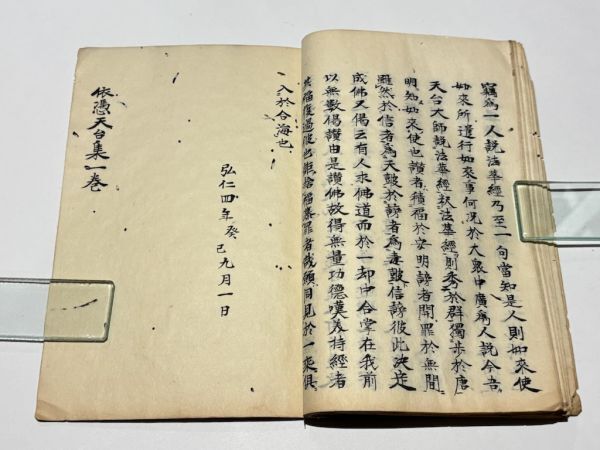 竊為一人説法華經乃至一句當知是人則如來使
如來所遣行如來事何況於大衆中廣為人説今吾
天台大師説法華經釈法華經則秀於群獨歩於唐
明知如來使也讃者積福於安明謗者開罪於無間
雖然於信者為天鼓於謗者為毒鼓信謗彼此決定
成佛又偈云有人求佛道而於一却中合掌在我前
以無数偈讃由是讃佛故得無量功德嘆美持經者
其福復過彼也誰捨福慕罪者哉願同見於一乘俱
入於合海也
弘仁四年癸巳九月一日
依憑天台集一巻